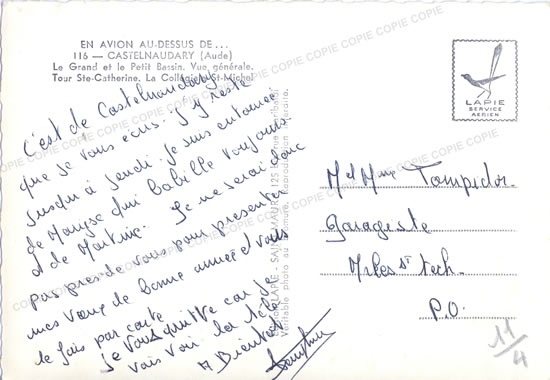 EN AVION AU-DESSUS DE...
116 — CASTELNAUDARY (Aude)
Le Grand et le Petit Bassin. Vue générale.
Tour Ste-Catherine. La Collégiale St-Michel
COPIE COPIE COPIE COPIE COPIE COPIE
LAPIE
SERVICE
AERIEN
C'est de Castelnaudary
que je vous écris. J'y reste
jusqu'à jeudi. je suis entourée
de Maryse qui babille toujours
et de Martine. Je ne serai donc
pas près de vous pour présenter
mes vœux de bonne année et vous
le fais par carte
je vous quitte car je
vais voir la télé
A Bientôt
LAPIE - SAINT-MAUR
Véritable photo
M et Mme Tompidor
Garagiste
P.O.
11/4